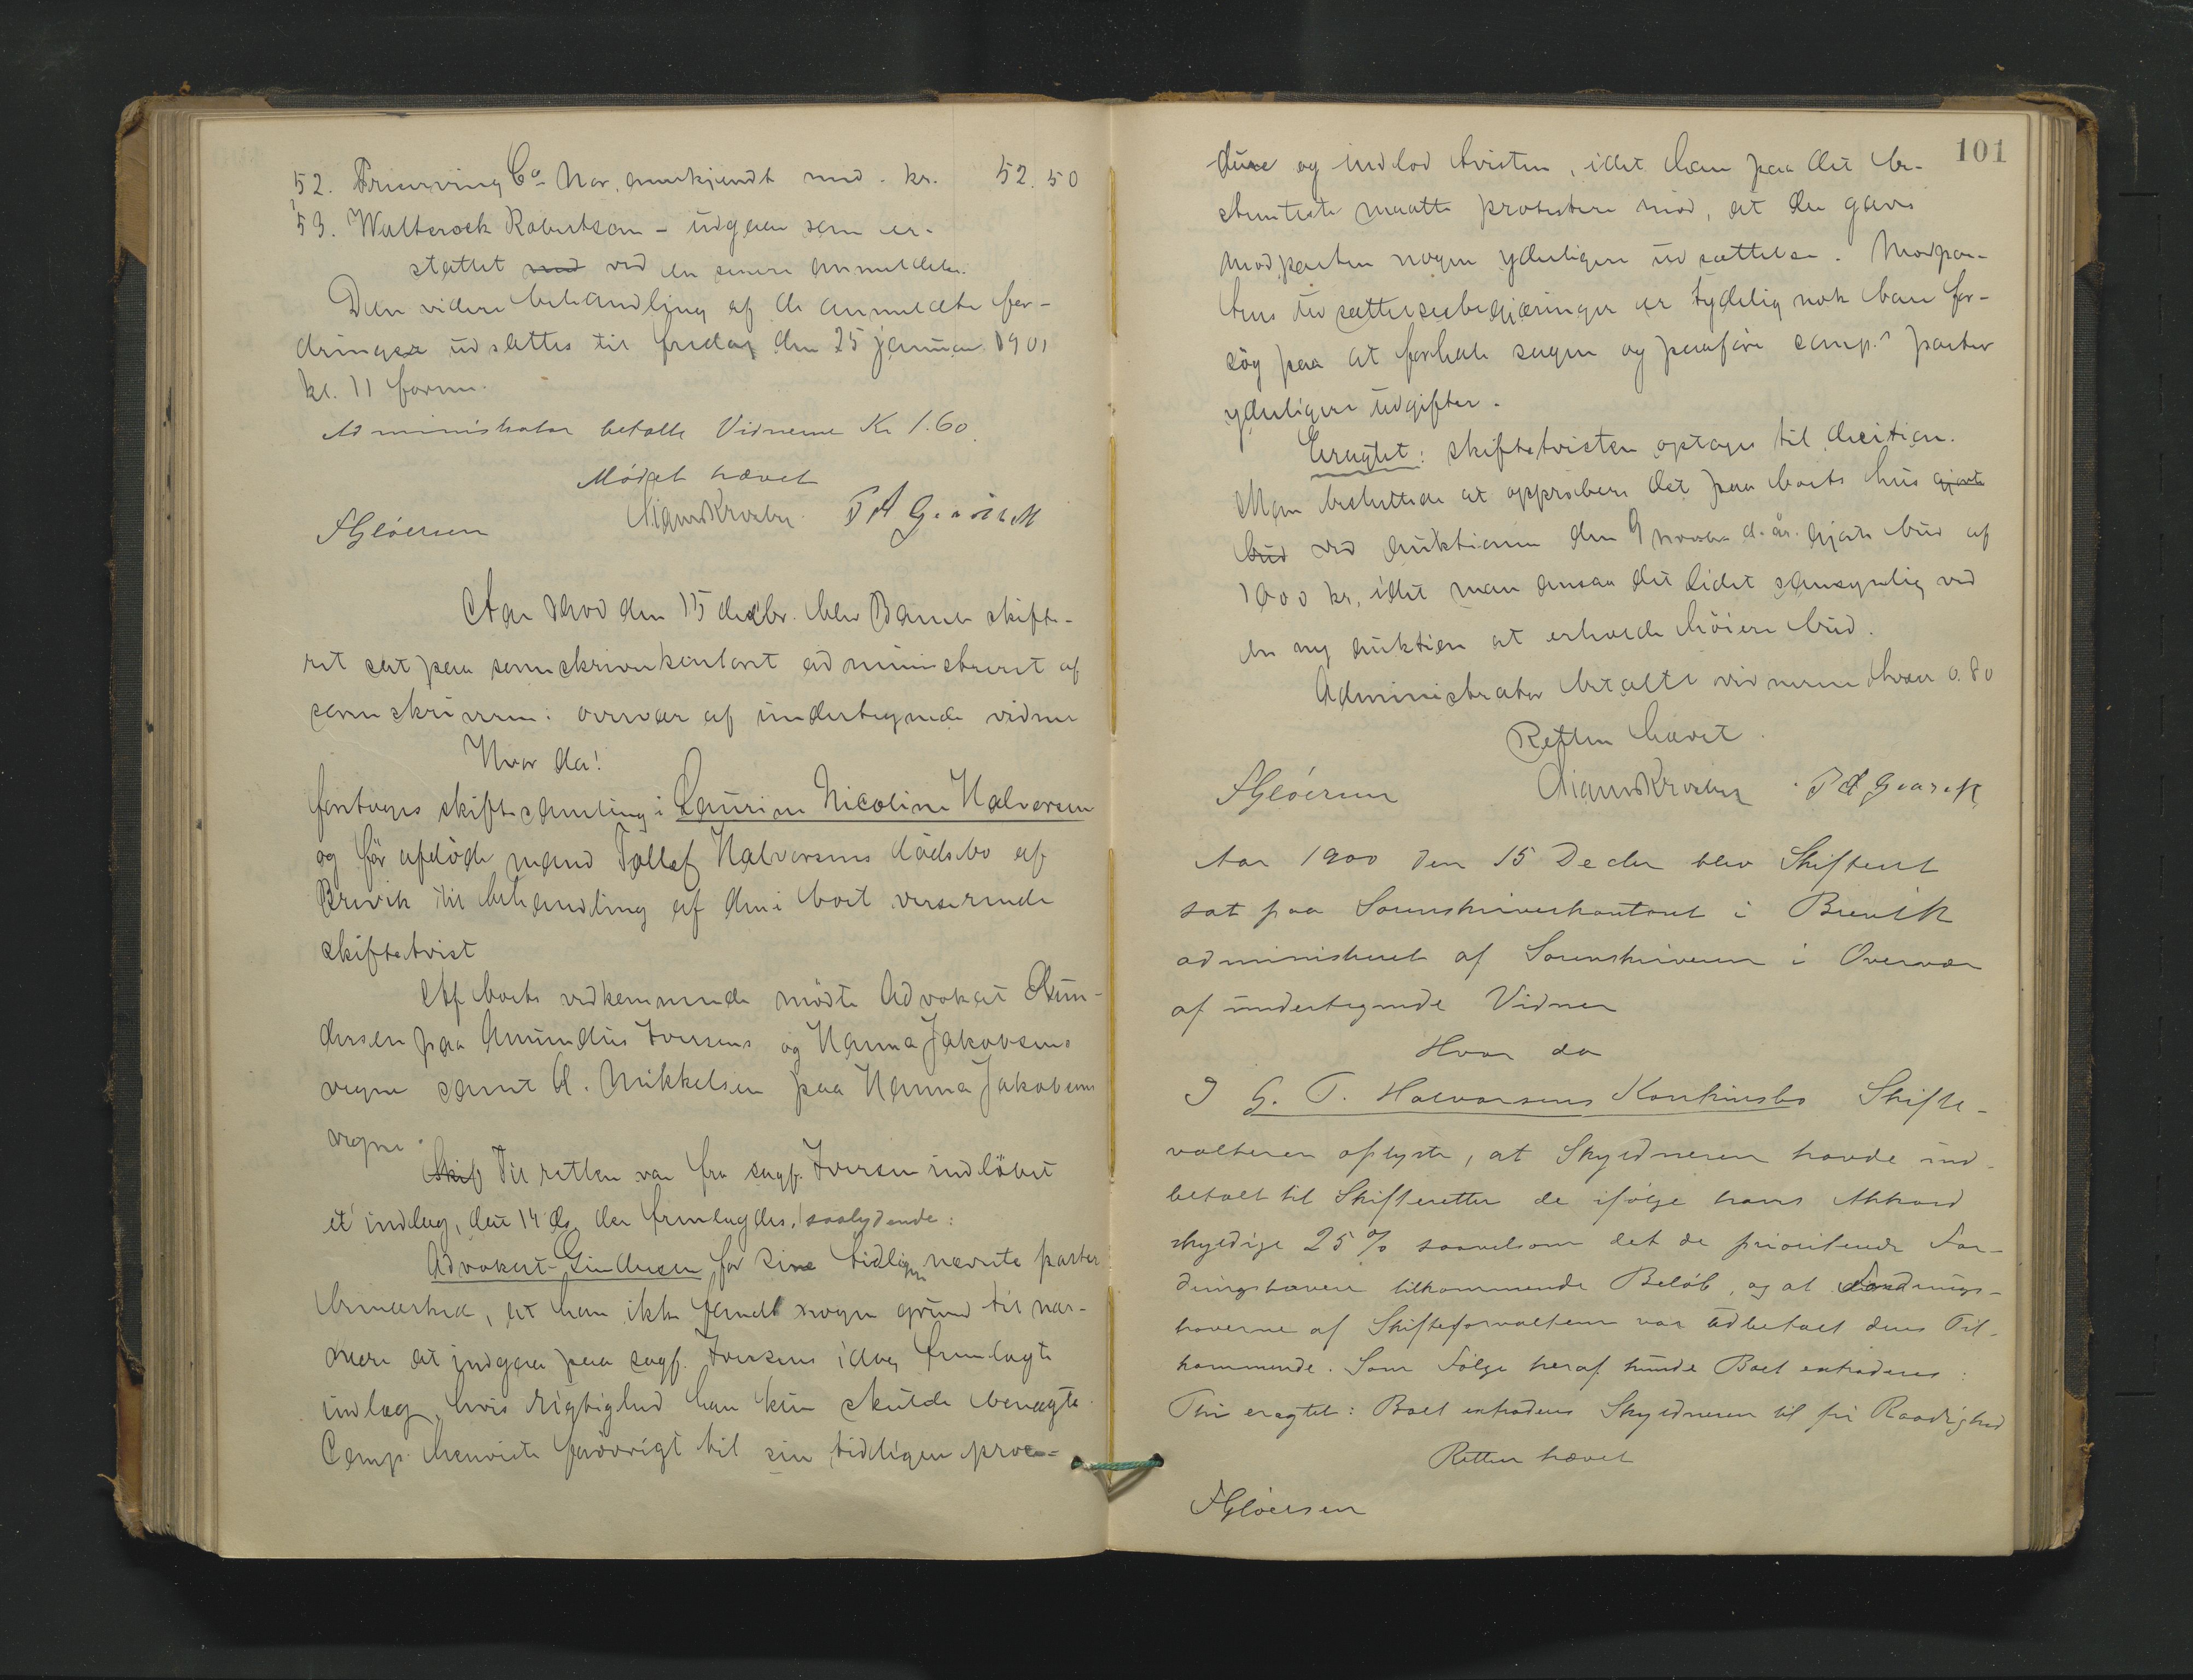 52. Co Nor. anerkjendt med kr. 52.50
53. Robertson - udgaar som er-
stattet med ved en senere anmeldelse.
Den videre behandling af de anmeldte for-
dringer udsættes til fredag den 25 januar 1901
kl. 11 form.
Administrator betalte Vidnerne Kr 1.60
Mødet hævet
FGlöersen
Aar 1900 den 15 decbr. blev Bamle skifte-
ret sat paa sorenskriverkontoret administreret af
sorenskriveren i overvær af undertegnede vidner
Hvor da!
foretoges skiftesamling i Laurine Nicoline Halvorsen
og før afdøde mand Tollef Halvorsens dødsbo af
Brevik til behandling af den i boet verserende
skiftetvist
Af boets vedkommende mødte Advokat Gun-
dersen paa Amundus Iversens og Hanna Jakobsens
vegne samt A. Mikkelsen paa Hanna Jakobsens
vegne.
Skif Til retten var fra sagf. Iversen indløbet
et indlæg, dat 14 ds der fremlagdes, saalydende:
Advokat Gundersen for sine tidligere nævnte parter
bemærked, at han ikke fandt nogen grund til nær-
mere at indgaa paa sagf. Iversens idag fremlagte
indlæg, hvis rigtighed han kun skulde benægte.
Comp. henviste forøvrigt til sin tidligere proce-
101
dure og indlod tvisten, idet han paa det be-
stemteste maatte protestere mod, at der gaves
modparten nogen yderligere udsættelse. Modpar-
tens udsættelsesbegjæringer er tydelig nok bare for-
søg paa at forhale sagen og paaføre comp.s parter
yderligere udgifter.
Eragtet: skiftetvisten optages til decition.
Man besluttede at approbere det paa boets hus gjorte
bud ved auktionen den 9 novbr d. år. gjorte bud af
1000 kr, idet man ansaa det lidet sansynlig ved
en ny auktion at erholde höiere bud.
Administrator betalte vidnerne hver 0.80
Retten hævet.
FGlöersen
Aar 1900 den 15 Decbr blev Skifteret
sat paa Sorenskriverkontoret i Brevik
administreret af Sorenskriveren i Overvær
af undertegnede Vidner
Hvor da
I G. T. Halvorsens Konkursbo Skifte-
valteren oplyste, at Skyldneren havde ind-
betalt til Skifteretten de ifølge hans Akkord
skyldige 25 % saavelsom det de prioriterede For-
dringshavere tilkommende Beløb, og at Fordrings-
haverne af Skifteforvalteren var udbetalt deres Til-
kommende. Som Følge heraf kunde Boet extraderes:
Thi eragtet: Boet extraderes Skyldneren til fri Raadighed
Retten hævet
FGlöersen